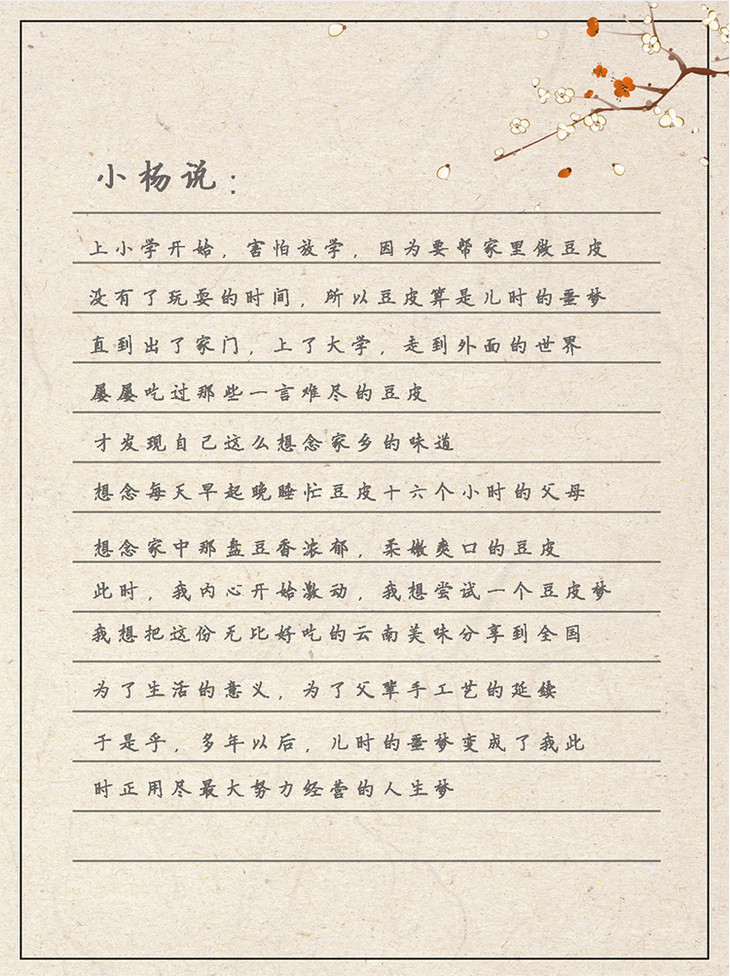 小杨说：
上小学开始，害怕放学，因为要帮家里做豆皮
没有了玩耍的时间，所以豆皮算是儿时的噩梦
直到出了家门，上了大学，走到外面的世界
屡屡吃过那些一言难尽的豆皮
才发现自己这么想念家乡的味道
想念每天早起晚睡忙豆皮十六个小时的父母
想念家中那盘豆香浓郁，柔嫩爽口的豆皮
此时，我内心开始激动，我想尝试一个豆皮梦
我想把这份无比好吃的云南美味分享到全国
为了生活的意义，为了父辈手工艺的延续
于是乎，多年以后，儿时的噩梦变成了我此
时正用尽最大努力经营的人生梦